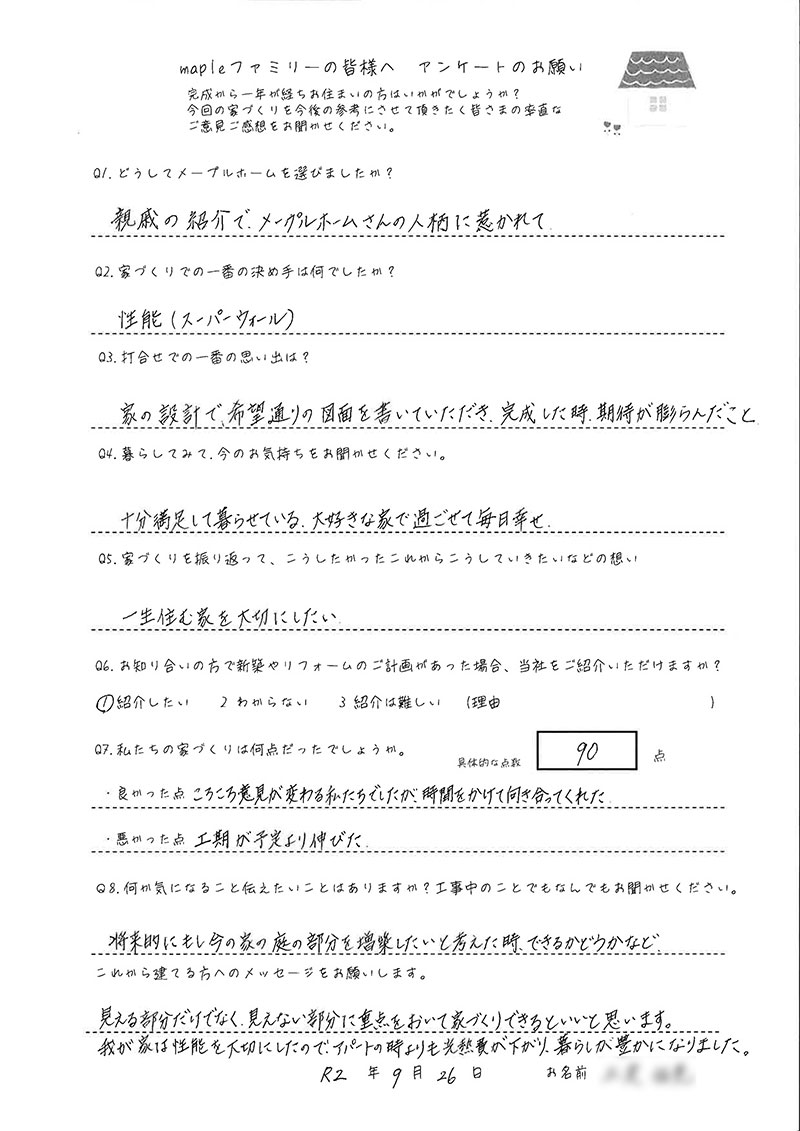 mapleファミリーの皆様へ　アンケートのお願い
完成から一年が経ちお住まいの方はいかがでしょうか？
今回の家づくりを今後の参考にさせて頂きたく皆さまの率直な
ご意見ご感想をお聞かせください。
Q1.どうしてメープルホームを選びましたか？
親戚の紹介で、メープルホームさんの人柄に惹かれて
Q2.家づくりでの一番の決め手は何でしたか？
性能（スーパーウォール）
Q3.打合せでの一番の思い出は？
家の設計で、希望通りの図面を書いていただき、完成した時、期待が膨らんだこと
Q4.暮らしてみて、今のお気持ちをお聞かせください。
十分満足して暮らせている。大好きな家で過ごせて毎日幸せ。
Q5.家づくりを振り返って、こうしたかったこれからこうしていきたいなどの想い
一生住む家を大切にしたい
Q6.お知り合いの方で新築やリフォームのご計画があった場合、当社をご紹介いただけますか？
①紹介したい　2 わからない　3 紹介は難しい　（理由　）
Q7.私たちの家づくりは何点だったでしょうか。　具体的な点数　90　点
・良かった点 ころころ意見が変わる私たちでしたが、時間をかけて向き合ってくれた
・悪かった点 工期が予定より伸びた
Q8.何か気になること伝えたいことはありますか？工事中のことでもなんでもお聞かせください。
将来的にもし今の家の庭の部分を増築したいと考えた時、できるかどうかなど
これから建てる方へのメッセージをお願いします。
見える部分だけでなく、見えない部分に重点をおいて家づくりできるといいと思います。
我が家は性能を大切にしたので、アパートの時よりも光熱費が下がり、暮らしが豊かになりました。
R2 年 9 月 26 日　お名前